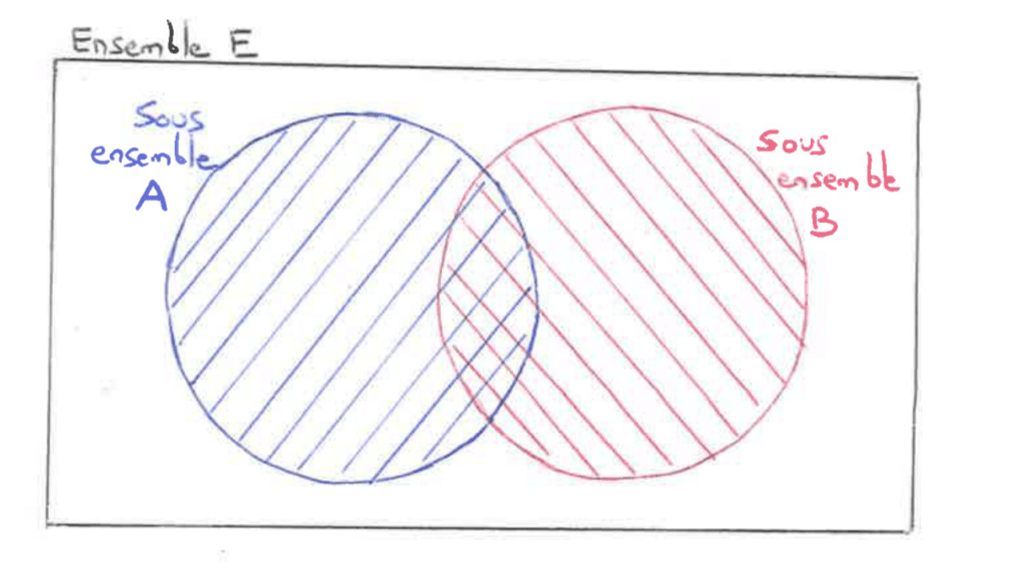 Ensemble E
Sous
ensemble
A
Sous
ensemble
B